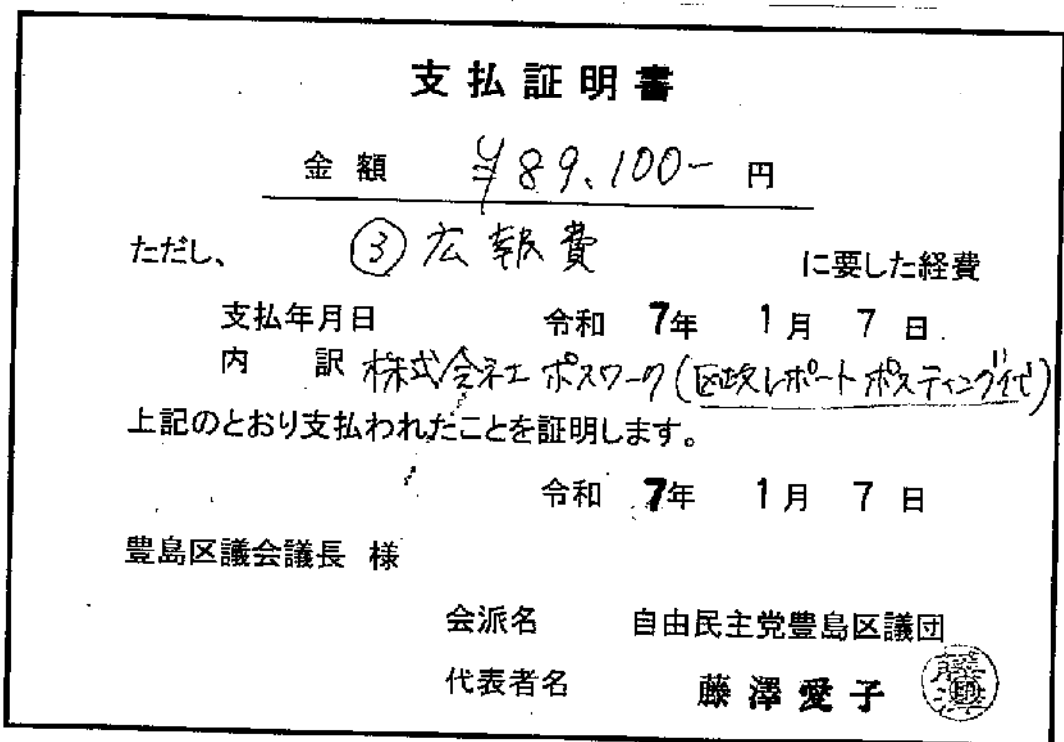 支払証明書
金額 ¥89,100- 円
ただし、 ③広報費 に要した経費
支払年月日 令和 7年 1月 7日
内訳 株式会社ポスワーク(区政レポートポスティング代)
上記のとおり支払われたことを証明します。
令和 7年 1月 7日
豊島区議会議長 様
会派名 自由民主党豊島区議団
代表者名 藤澤愛子 藤澤